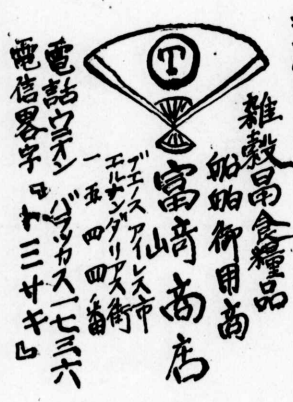 T
雑穀昂食糧品
船舶御用商
富﨑商店
ブエノスアイレス市
エルナンダリアス街
一五四四番
電話ウニオン バラッカス一七三六
電信畧字『トミサキ』